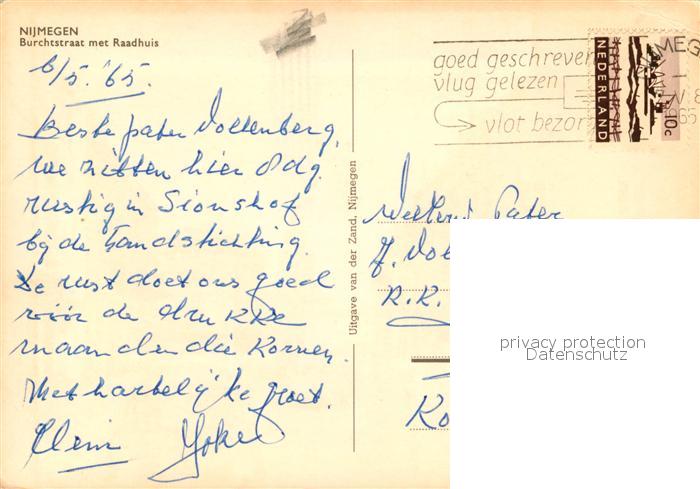 NIJMEGEN
Burchtstraat met Raadhuis
6/5. '65.
Beste pater Vollenberg,
we zitten hier 8 dg.
rustig in Sionshof
bij de Landstichting.
De rust doet ons goed
vóór de drukke
maanden die komen.
Met hartelijke groet.
Uitgave van der Zand, Nijmegen
goed geschreven
vlug gelezen
vlot bezor
NEDERLAND
10c
MEG
Pater
R.K.
Ko
privacy protection
Datenschutz